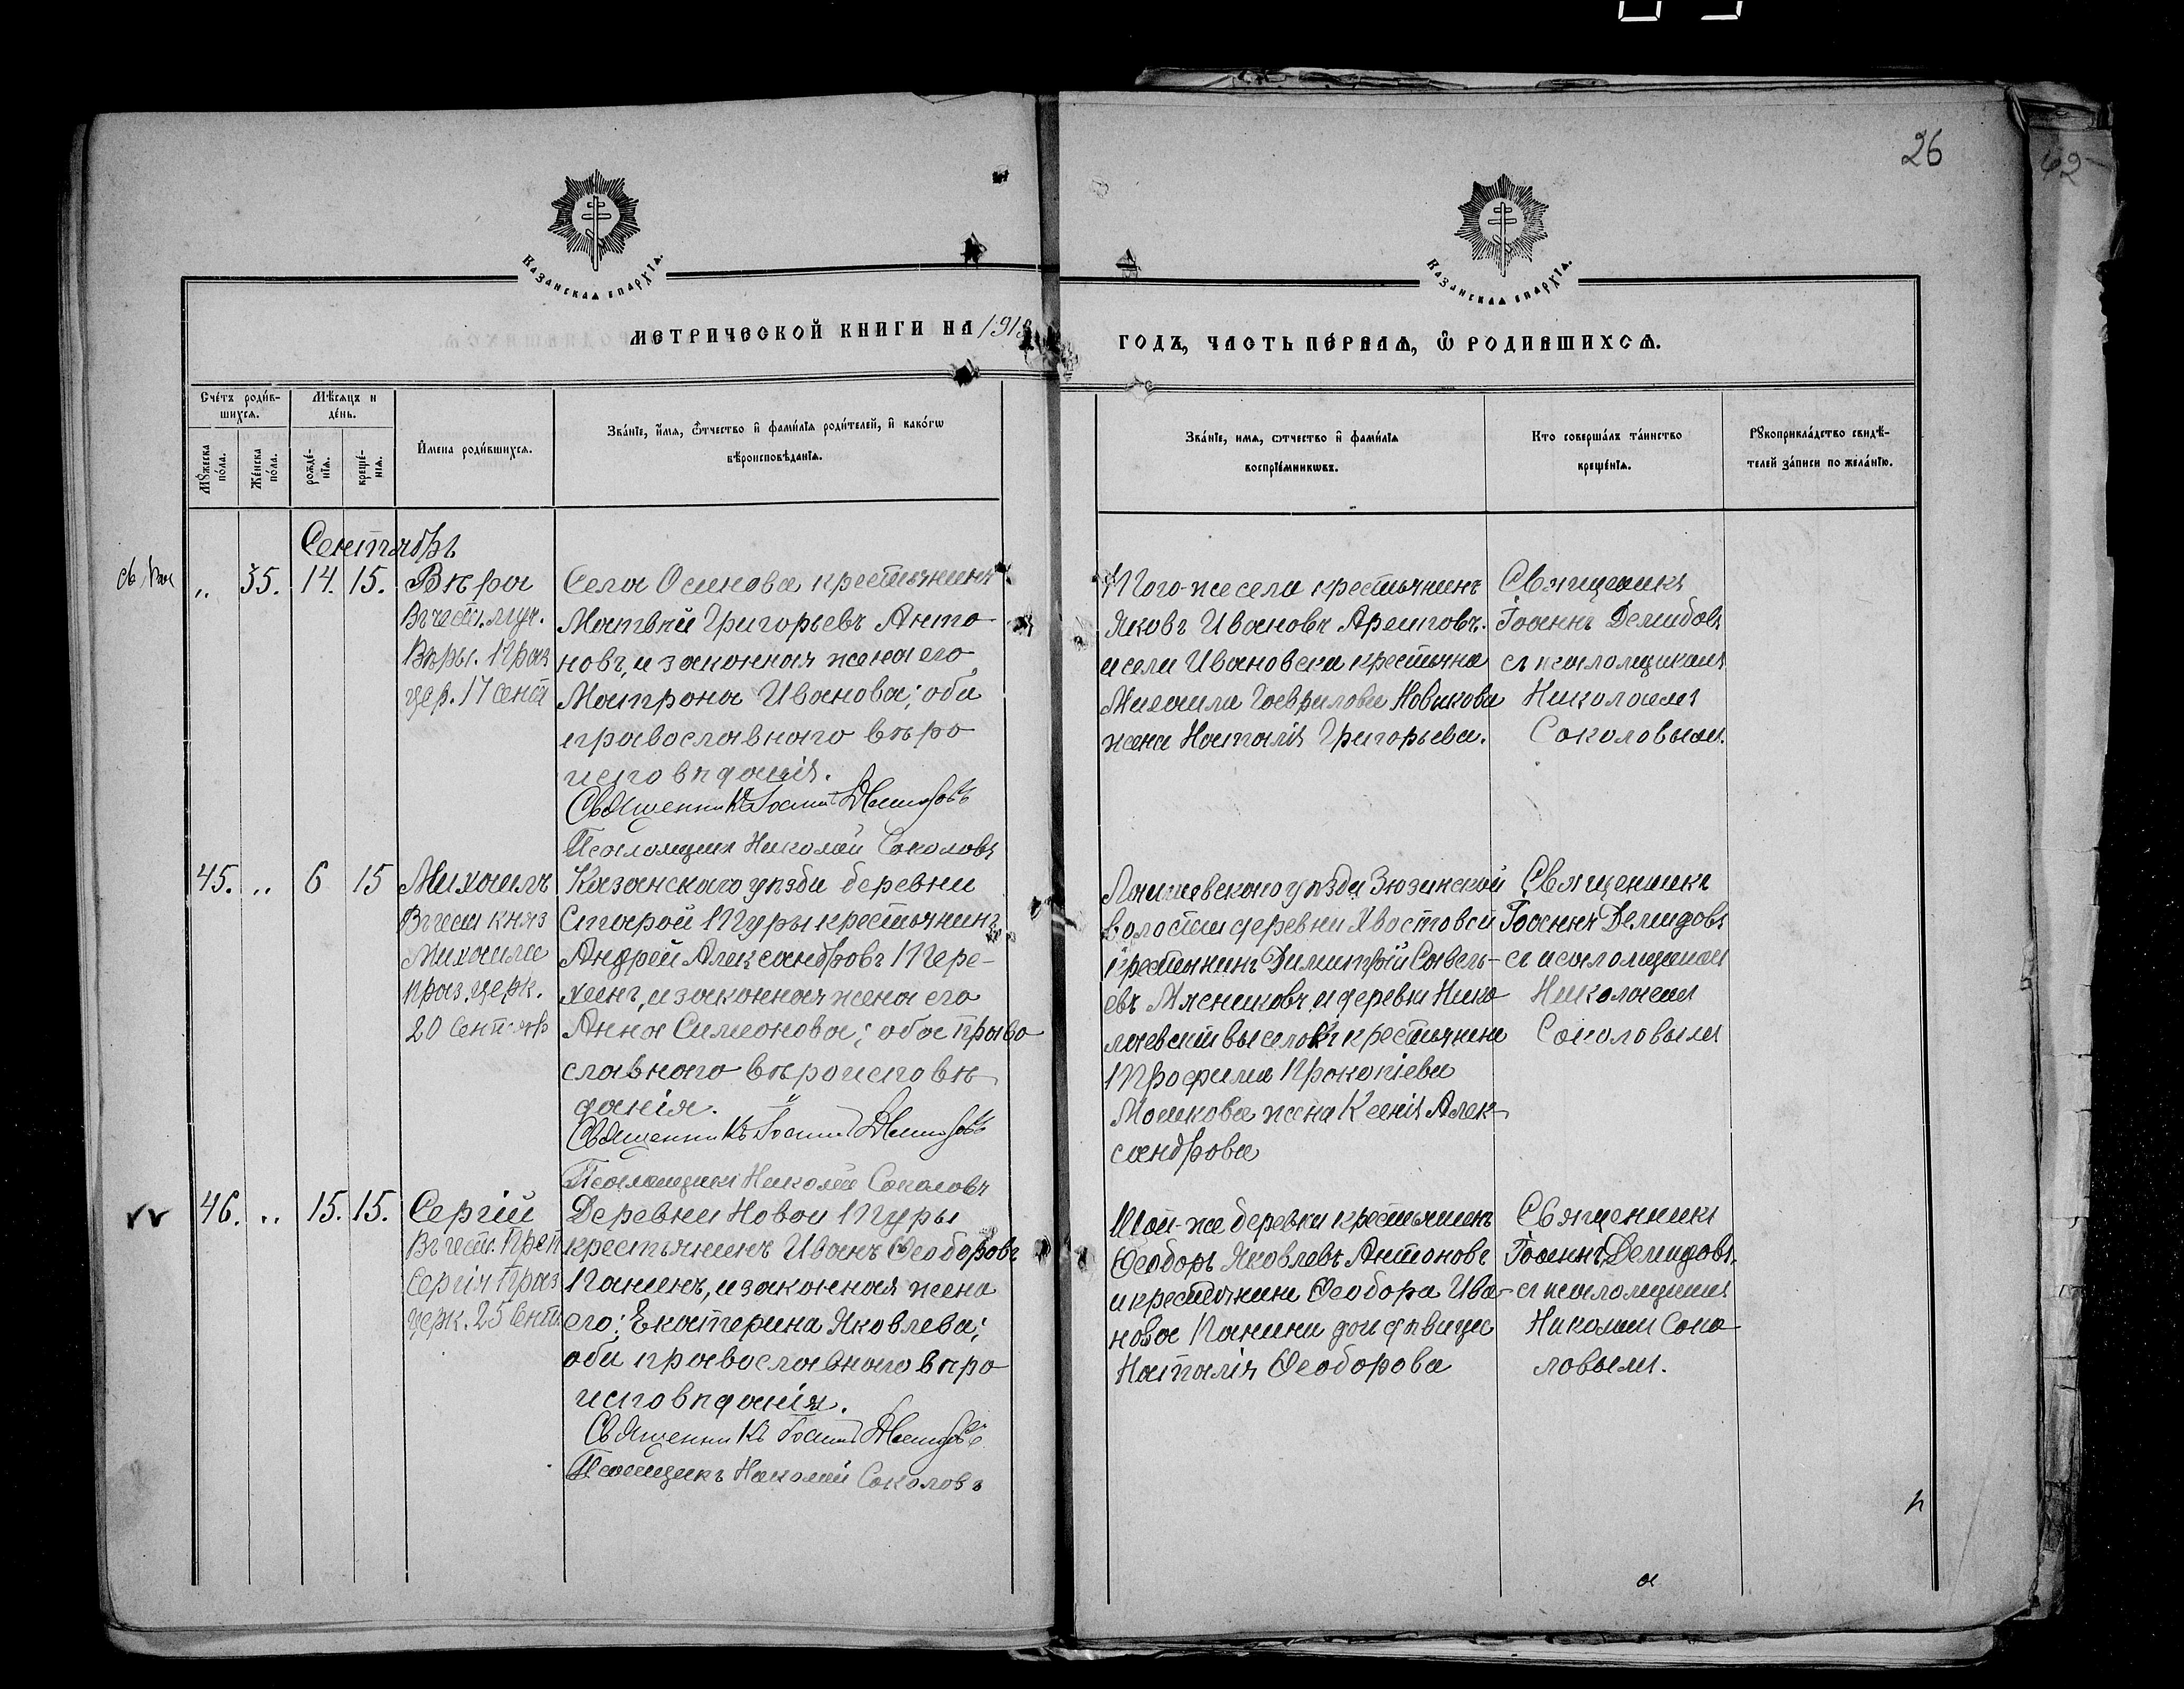 26
62
Казанская епархїа.
Казанская епархїа.
МЕТРИЧЕСКОЙ КНИГИ НА 191
ГОДЪ, ЧАСТЬ ПЕ́РВАѦ, Ѡ҆ РОДИВШИХСѦ.
Сче́тъ роди́в-
шихсѧ.
Мѣ́сѧцъ и
де́нь.
Мꙋ́жеска
по́ла.
Же́нска
по́ла.
рожде́-
нїѧ.
креще́-
нїѧ.
И҆мена роди́вшихсѧ.
Зва́нїе, и҆́мѧ, ѻ҆́тчество и҆ фами́лїѧ роди́телей, и҆ како́гѡ
вѣроисповѣ́данїѧ.
Зва́нїе, имѧ, ѻтчество и҆ фами́лїѧ
воспрїе́мникѡвъ.
Кто соверша́лъ та́инство
креще́нїѧ.
Рꙋкоприкла́дство свидѣ́-
телей за́писи по жела́нїю.
Сентябрь
„ 35. 14. 15. Вѣра
Въ чест. муч.
Вѣры. Праз
цер. 17 сент
Села Осинова крестьянинъ
Матвѣй Григорьевъ Анто-
новъ, и законная жена его
Матрона Иванова; оба
православнаго вѣро
исповѣданія.
Священникъ Іоаннъ Демидовъ
Псаломщикъ Николай Соколовъ
Того-же села крестьянинъ
Яковъ Ивановъ
и села Ивановска крестьяна
Михаила Гаврилова Новикова
жена Наталія Григорьева.
Священникъ
Іоаннъ Демидовъ
съ псаломщикомъ
Николаемъ
Соколовымъ.
45. „ 6 15 Михаилъ
Въ чест княз
Михаила
праз. церк.
20 Сентяб
Казанскаго уѣзда деревни
Старой Туры крестьянинъ
Андрей Александровъ Тере-
хинъ, и законная жена его
Анна Симонова; оба право
славнаго вѣроисповѣ
данія.
Священникъ Іоаннъ Демидовъ
Псаломщикъ Николай Соколовъ
Лаишевскаго уѣзда Зюзинской
волости деревни Хвостовой
крестьянинъ Димитрій Савель-
евъ Мясниковъ и деревни Нико
лаевскій выселокъ крестьянина
Трофима Прокопіева
Мошкова жена Ксенія Алек-
сандрова
Священникъ
Іоаннъ Демидовъ
съ псаломщикомъ
Николаемъ
Соколовымъ
46. „ 15. 15. Сергій
Въ чест. Преп
Сергія праз
церк. 25 Сент.
Деревни Новой Туры
крестьянинъ Иванъ Ѳеодоровъ
Панинъ, и законная жена
его: Екатерина Яковлева;
оба православнаго вѣро
исповѣданія.
Священникъ Іоаннъ Демидовъ
Псаломщикъ Николай Соколовъ
Той-же деревни крестьянинъ
Ѳеодоръ Яковлевъ Антоновъ
и крестьянина Ѳеодора Ива-
нова Панина дочь дѣвица
Наталія Ѳеодорова
Священникъ
Іоаннъ Демидовъ,
съ псаломщикомъ
Николаемъ Соко
ловымъ.